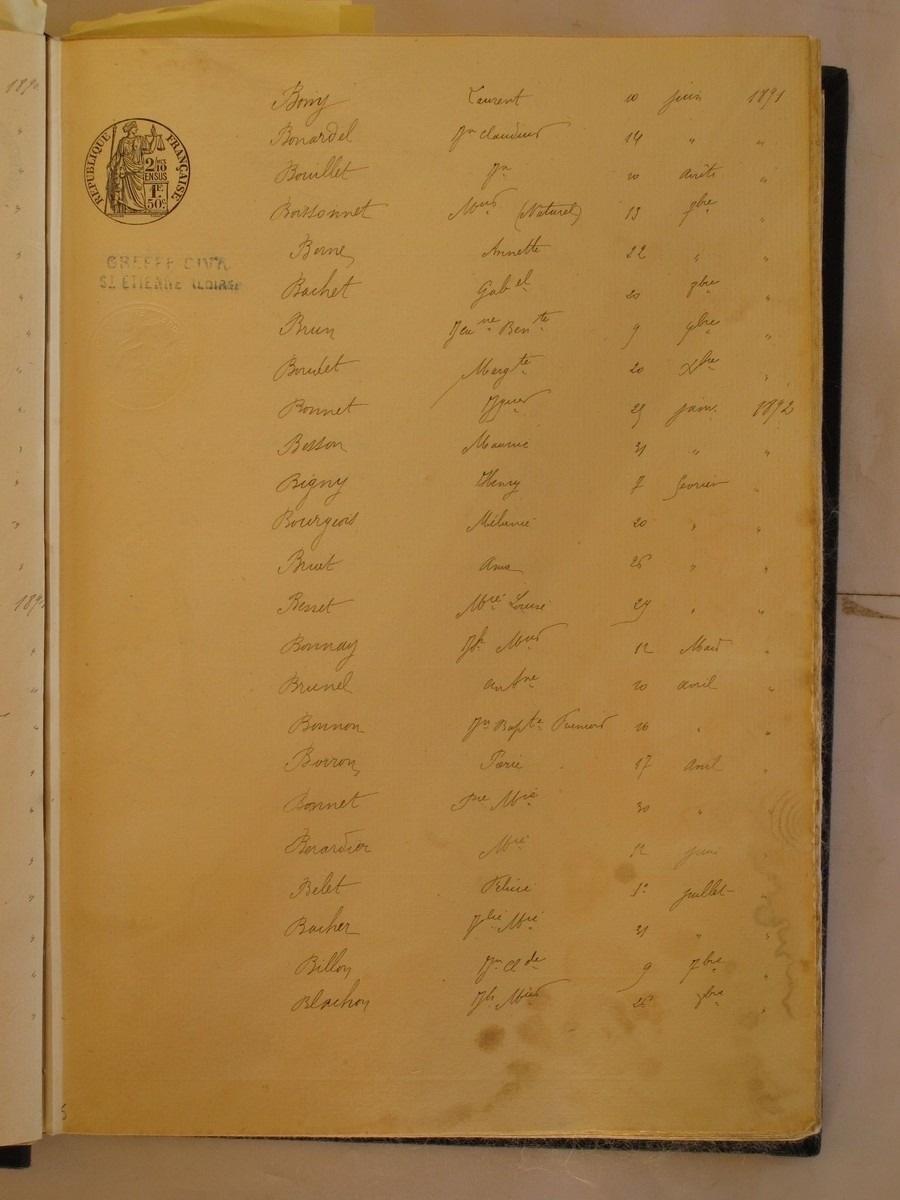 1890
RÉPUBLIQUE FRANÇAISE
2/10 EN SUS
1F 50c
GREFFE CIVIL
ST ETIENNE (LOIRE)
Bony Laurent 10 juin 1891
Bonardel Jn Claudius 14 " "
Bouillet Jn 10 "
Boissonnet (Naturel) 13 7bre "
Borne Annette 22 " "
Bachet Gabel 20 "
Brun Jeune Bente 9 9bre "
Boudet Margte 20 Xbre "
Bonnet 29 janv. 1892
Besson Maurice 31 " "
Bigny Henry 7 février "
Bourgeois Mélanie 20 " "
Bruet 26 " "
Besset Mrie Louise 29 " "
Bonnay Jh 12 "
Brunel Antne 10 avril "
Bonnon Jn Bapte 16 " "
Borron 17 avril "
Bonnet Mrie 30 "
Berardier Mrie 12 juin
Belet 1er juillet
Bacher Mrie 31 " "
Billon Jn Clde 9 7bre "
Blachon Jh 26 "